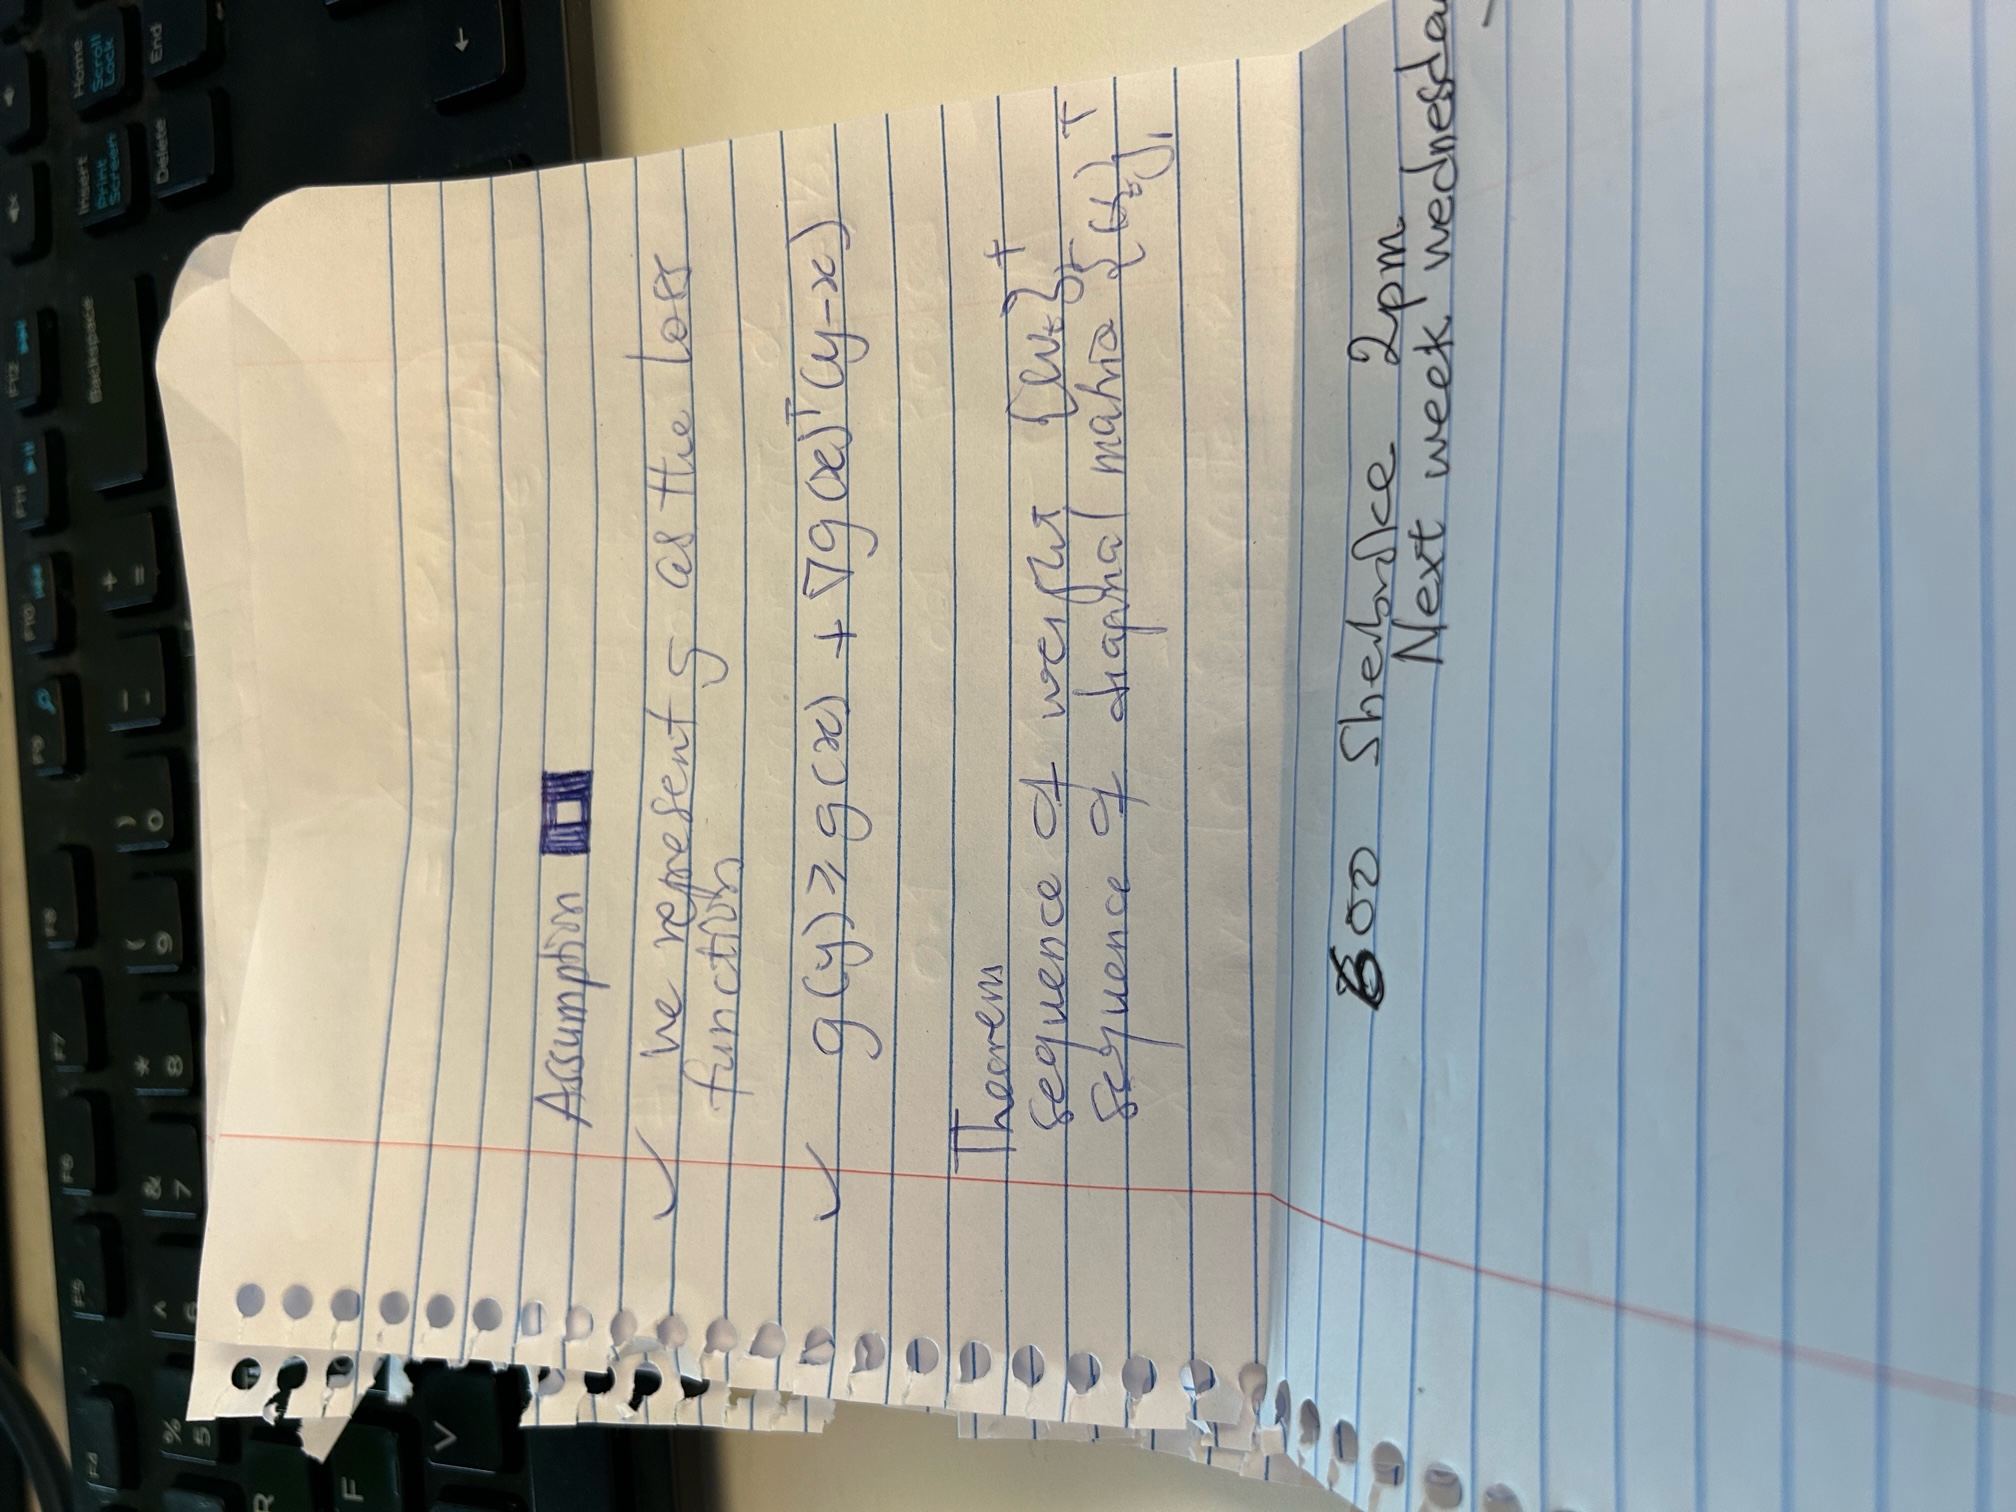 F4 F5 F6 F7 F8 F9 F10 F11 F12
% 5 ^ 6 & 7 * 8 ( 9 ) 0 _ - + = Backspace Insert Print Screen Home Scroll Lock
Delete End
R
F
V
Assumption
✓ we represent g as the loss
function
✓ g(y) ≥ g(x) + ∇g(x)ᵀ(y-x)
Theorem
sequence of weight
sequence of diagonal matrix
600 Sherbrooke 2pm
Next week wednesda